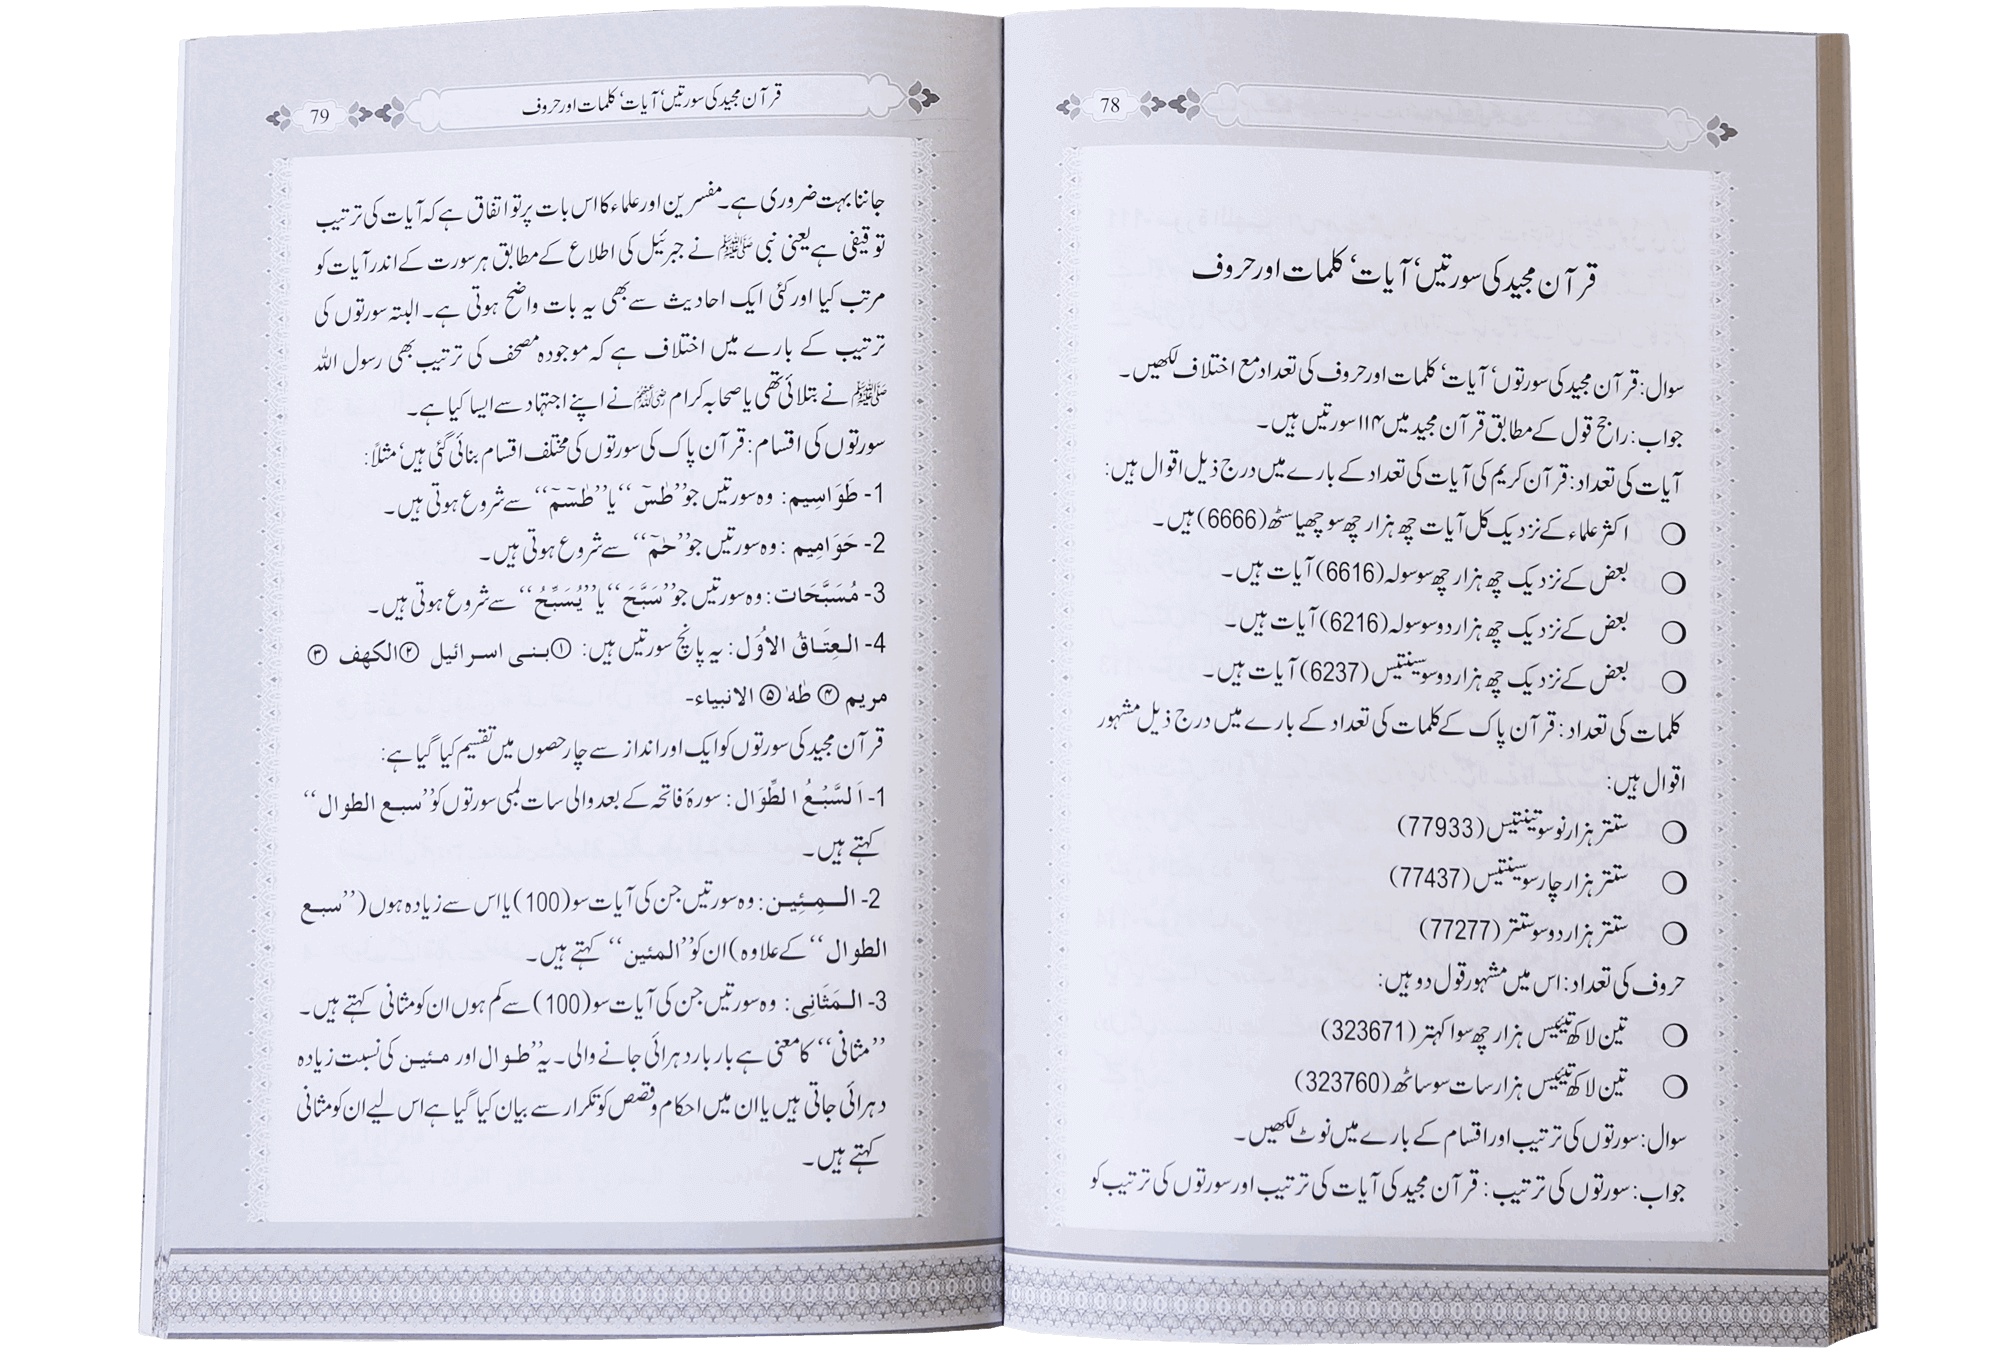 78
قرآن مجید کی سورتیں‘ آیات‘ کلمات اور حروف
سوال: قرآن مجید کی سورتوں‘ آیات‘ کلمات اور حروف کی تعداد مع اختلاف لکھیں۔
جواب: راجح قول کے مطابق قرآن مجید میں ۱۱۴ سورتیں ہیں۔
آیات کی تعداد: قرآن کریم کی آیات کی تعداد کے بارے میں درج ذیل اقوال ہیں:
○ اکثر علماء کے نزدیک کل آیات چھ ہزار چھ سو چھیاسٹھ (6666) ہیں۔
○ بعض کے نزدیک چھ ہزار چھ سو سولہ (6616) آیات ہیں۔
○ بعض کے نزدیک چھ ہزار دو سو سولہ (6216) آیات ہیں۔
○ بعض کے نزدیک چھ ہزار دو سو سینتیس (6237) آیات ہیں۔
کلمات کی تعداد: قرآن پاک کے کلمات کی تعداد کے بارے میں درج ذیل مشہور
اقوال ہیں:
○ ستتر ہزار نو سو تینتیس (77933)
○ ستتر ہزار چار سو سینتیس (77437)
○ ستتر ہزار دو سو ستتر (77277)
حروف کی تعداد: اس میں مشہور قول دو ہیں:
○ تین لاکھ تیئیس ہزار چھ سو اکہتر (323671)
○ تین لاکھ تیئیس ہزار سات سو ساٹھ (323760)
سوال: سورتوں کی ترتیب اور اقسام کے بارے میں نوٹ لکھیں۔
جواب: سورتوں کی ترتیب: قرآن مجید کی آیات کی ترتیب اور سورتوں کی ترتیب کو
قرآن مجید کی سورتیں‘ آیات‘ کلمات اور حروف
79
جاننا بہت ضروری ہے۔ مفسرین اور علماء کا اس بات پر تو اتفاق ہے کہ آیات کی ترتیب
توقیفی ہے یعنی نبی ﷺ نے جبرئیل کی اطلاع کے مطابق ہر سورت کے اندر آیات کو
مرتب کیا اور کئی ایک احادیث سے بھی یہ بات واضح ہوتی ہے۔ البتہ سورتوں کی
ترتیب کے بارے میں اختلاف ہے کہ موجودہ مصحف کی ترتیب بھی رسول اللہ
ﷺ نے بتلائی تھی یا صحابہ کرام رضی اللہ عنہم نے اپنے اجتہاد سے ایسا کیا ہے۔
سورتوں کی اقسام: قرآن پاک کی سورتوں کی مختلف اقسام بنائی گئی ہیں‘ مثلاً:
1- طَوَاسِیم: وہ سورتیں جو ’’طٰسٓ‘‘ یا ’’طٰسٓمٓ‘‘ سے شروع ہوتی ہیں۔
2- حَوَامِیم: وہ سورتیں جو ’’حٰمٓ‘‘ سے شروع ہوتی ہیں۔
3- مُسَبَّحَات: وہ سورتیں جو ’’سَبَّحَ‘‘ یا ’’یُسَبِّحُ‘‘ سے شروع ہوتی ہیں۔
4- العِتَاقُ الاُوَل: یہ پانچ سورتیں ہیں: ①بنی اسرائیل ②الکھف ③
مریم ④ طٰہٰ ⑤ الانبیاء-
قرآن مجید کی سورتوں کو ایک اور انداز سے چار حصوں میں تقسیم کیا گیا ہے:
1- اَلسَّبْعُ الطِّوَال: سورۂ فاتحہ کے بعد والی سات لمبی سورتوں کو ’’سبع الطوال‘‘
کہتے ہیں۔
2- المِئِین: وہ سورتیں جن کی آیات سو (100) یا اس سے زیادہ ہوں (’’سبع
الطوال‘‘ کے علاوہ) ان کو ’’المئین‘‘ کہتے ہیں۔
3- المَثَانِی: وہ سورتیں جن کی آیات سو (100) سے کم ہوں ان کو مثانی کہتے ہیں۔
’’مثانی‘‘ کا معنی ہے بار بار دہرائی جانے والی۔ یہ ’’طوال اور مئین کی نسبت زیادہ
دہرائی جاتی ہیں یا ان میں احکام و قصص کو تکرار سے بیان کیا گیا ہے اس لیے ان کو مثانی
کہتے ہیں۔